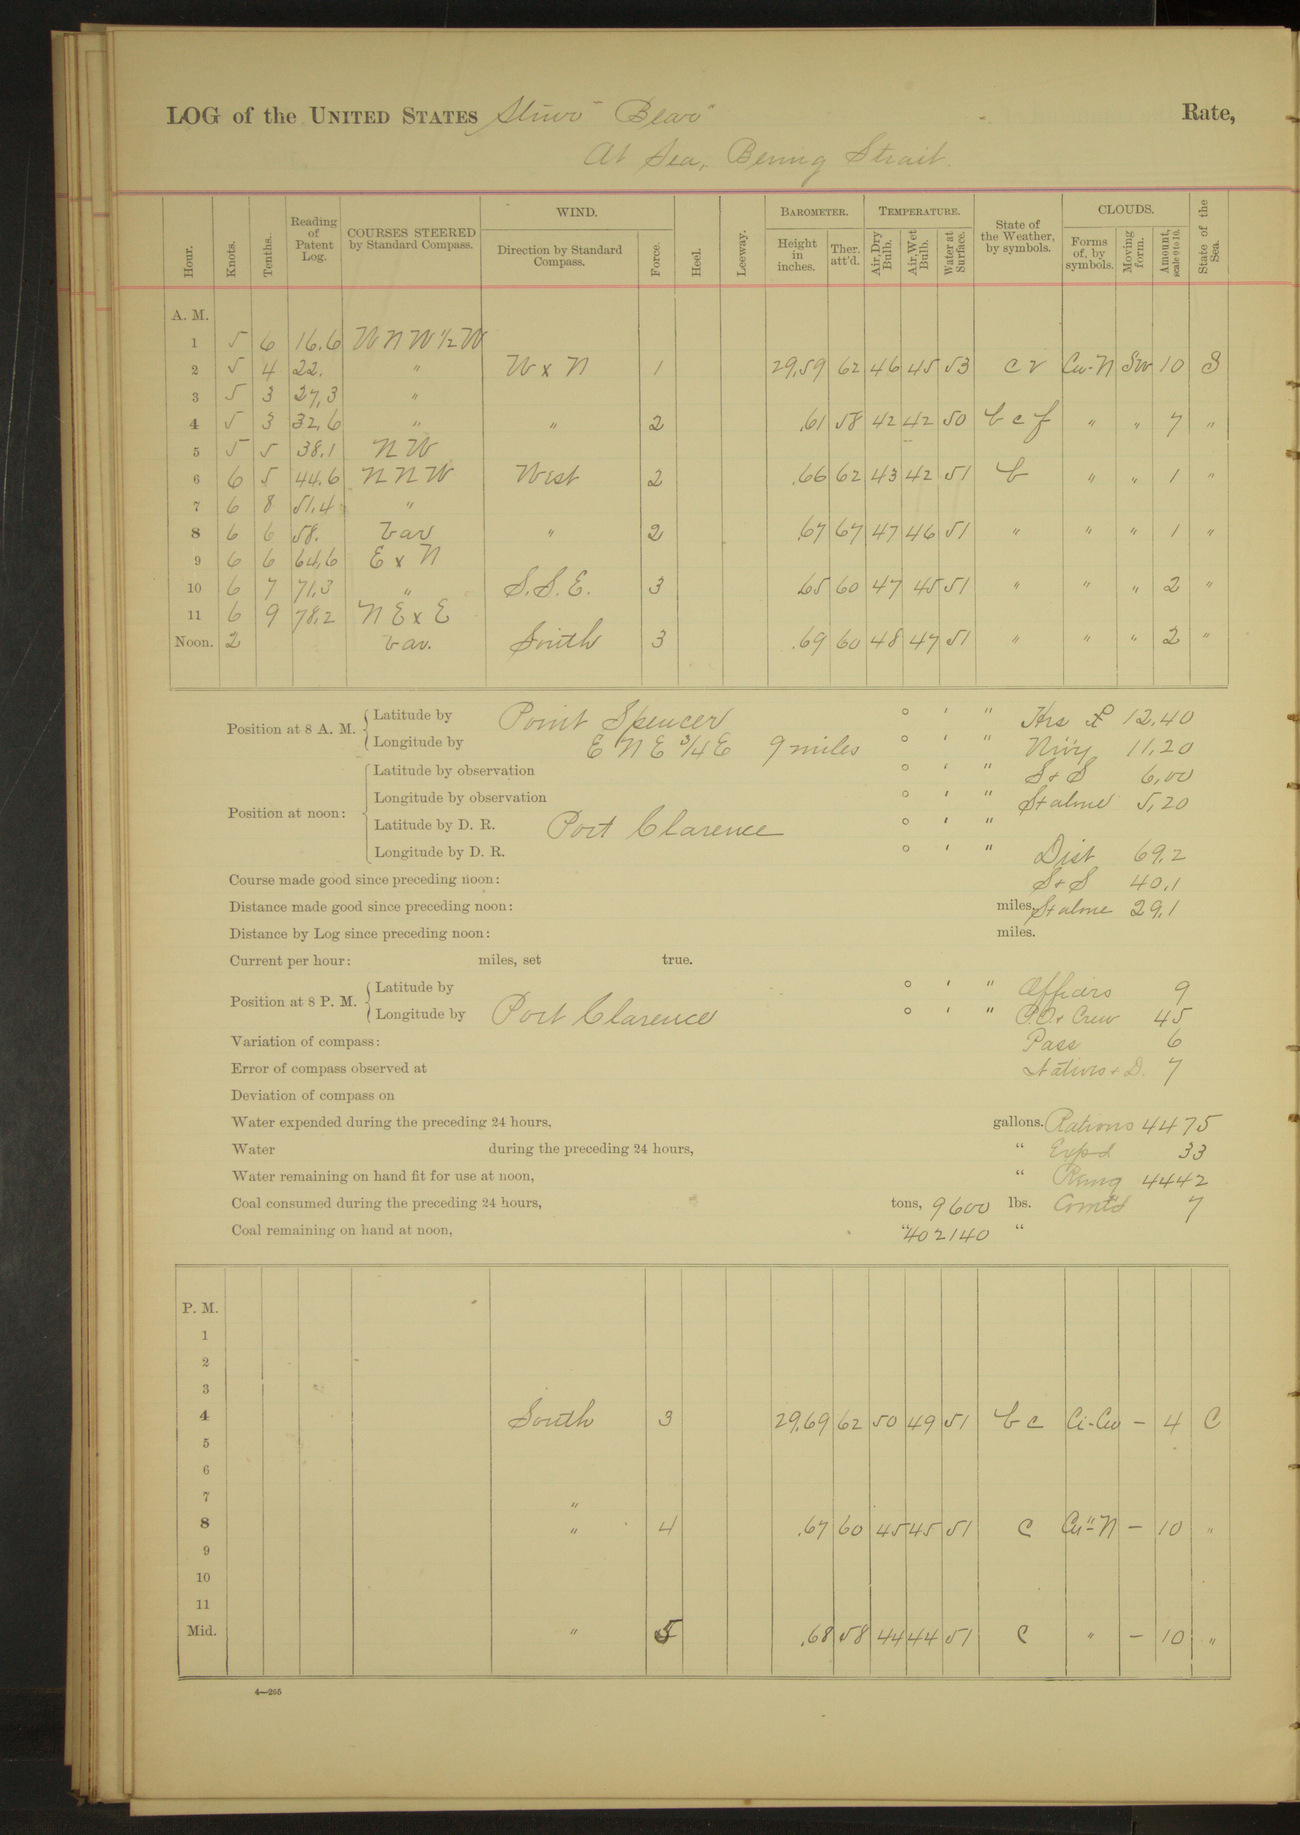 LOG of the UNITED STATES Stmr "Bear" Rate,
At Sea, Bering Strait.
Hour. Knots. Tenths. Reading of Patent Log. COURSES STEERED by Standard Compass. WIND. Direction by Standard Compass. Force. Heel. Leeway. BAROMETER. Height in inches. Ther. att'd. TEMPERATURE. Air, Dry Bulb. Air, Wet Bulb. Water at Surface. State of the Weather, by symbols. CLOUDS. Forms of, by symbols. Moving form. Amount, scale 0 to 10. State of the Sea.
A. M.
1 5 6 16.6 W N W ½ W
2 5 4 22. " W x N 1 29.59 62 46 45 53 c r Cu-N SW 10 S
3 5 3 27,3 "
4 5 3 32,6 " " 2 .61 58 42 42 50 b c f " " 7 "
5 5 5 38,1 N W
6 6 5 44.6 N N W West 2 .66 62 43 42 51 b " " 1 "
7 6 8 51.4 "
8 6 6 58. Var " 2 .67 67 47 46 51 " " " 1 "
9 6 6 64,6 E x N
10 6 7 71,3 " S. S. E. 3 .65 60 47 45 51 " " " 2 "
11 6 9 78,2 N E x E
Noon. 2 Var. South 3 .69 60 48 47 51 " " " 2 "
Position at 8 A. M. Latitude by Point Spencer ° ' " Hrs 12,40
Longitude by E N E ¾ E 9 miles ° ' " 11,20
Position at noon: Latitude by observation ° ' " S + S 6,00
Longitude by observation ° ' " St alone 5,20
Latitude by D. R. Port Clarence ° ' "
Longitude by D. R. ° ' " Dist 69,2
Course made good since preceding noon: S + S 40,1
Distance made good since preceding noon: miles. St alone 29,1
Distance by Log since preceding noon: miles.
Current per hour: miles, set true.
Position at 8 P. M. Latitude by ° ' " Officers 9
Longitude by Port Clarence ° ' " P.O. + Crew 45
Variation of compass: Pass 6
Error of compass observed at Natives + D. 7
Deviation of compass on
Water expended during the preceding 24 hours, gallons. Rations 4475
Water during the preceding 24 hours, " Exp'd 33
Water remaining on hand fit for use at noon, " Remg 4442
Coal consumed during the preceding 24 hours, tons, 9600 lbs. Comt'd 7
Coal remaining on hand at noon, " 402140 "
P. M.
1
2
3
4 South 3 29,69 62 50 49 51 b c Ci-Cu - 4 C
5
6
7 "
8 " 4 .67 60 45 45 51 c Cu-N - 10 "
9
10
11
Mid. " 5 .68 58 44 44 51 c " - 10 "
4—265